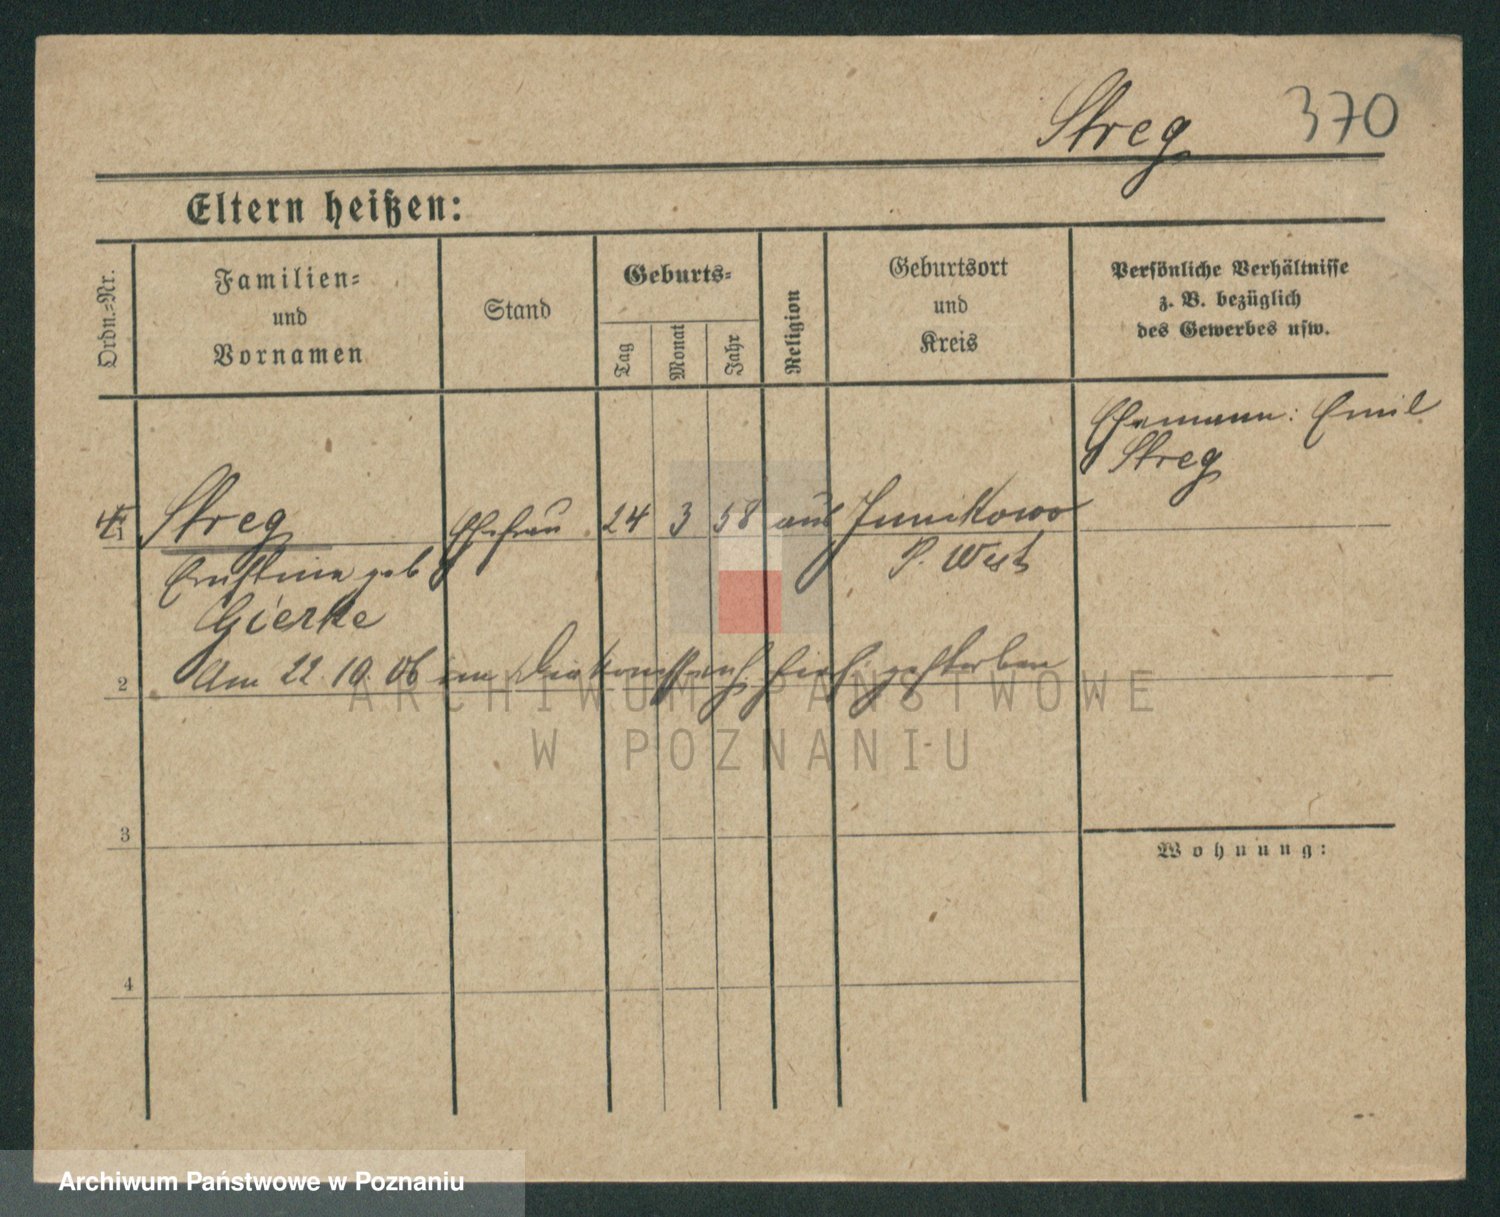 Streg 370
Eltern heißen:
Ordn.-Nr.
Familien- und Vornamen
Stand
Geburts-
Tag
Monat
Jahr
Religion
Geburtsort und Kreis
Persönliche Verhältnisse z. B. bezüglich des Gewerbes usw.
Ehemann: Emil
Streg
Streg Ehefrau 24 3 58 aus Junikowo
Ernstine geb P. West
Gierke
Am 22. 10. 06 im hier gestorben
2
3
Wohnung:
4
ARCHIWUM PAŃSTWOWE
W POZNANIU
Archiwum Państwowe w Poznaniu